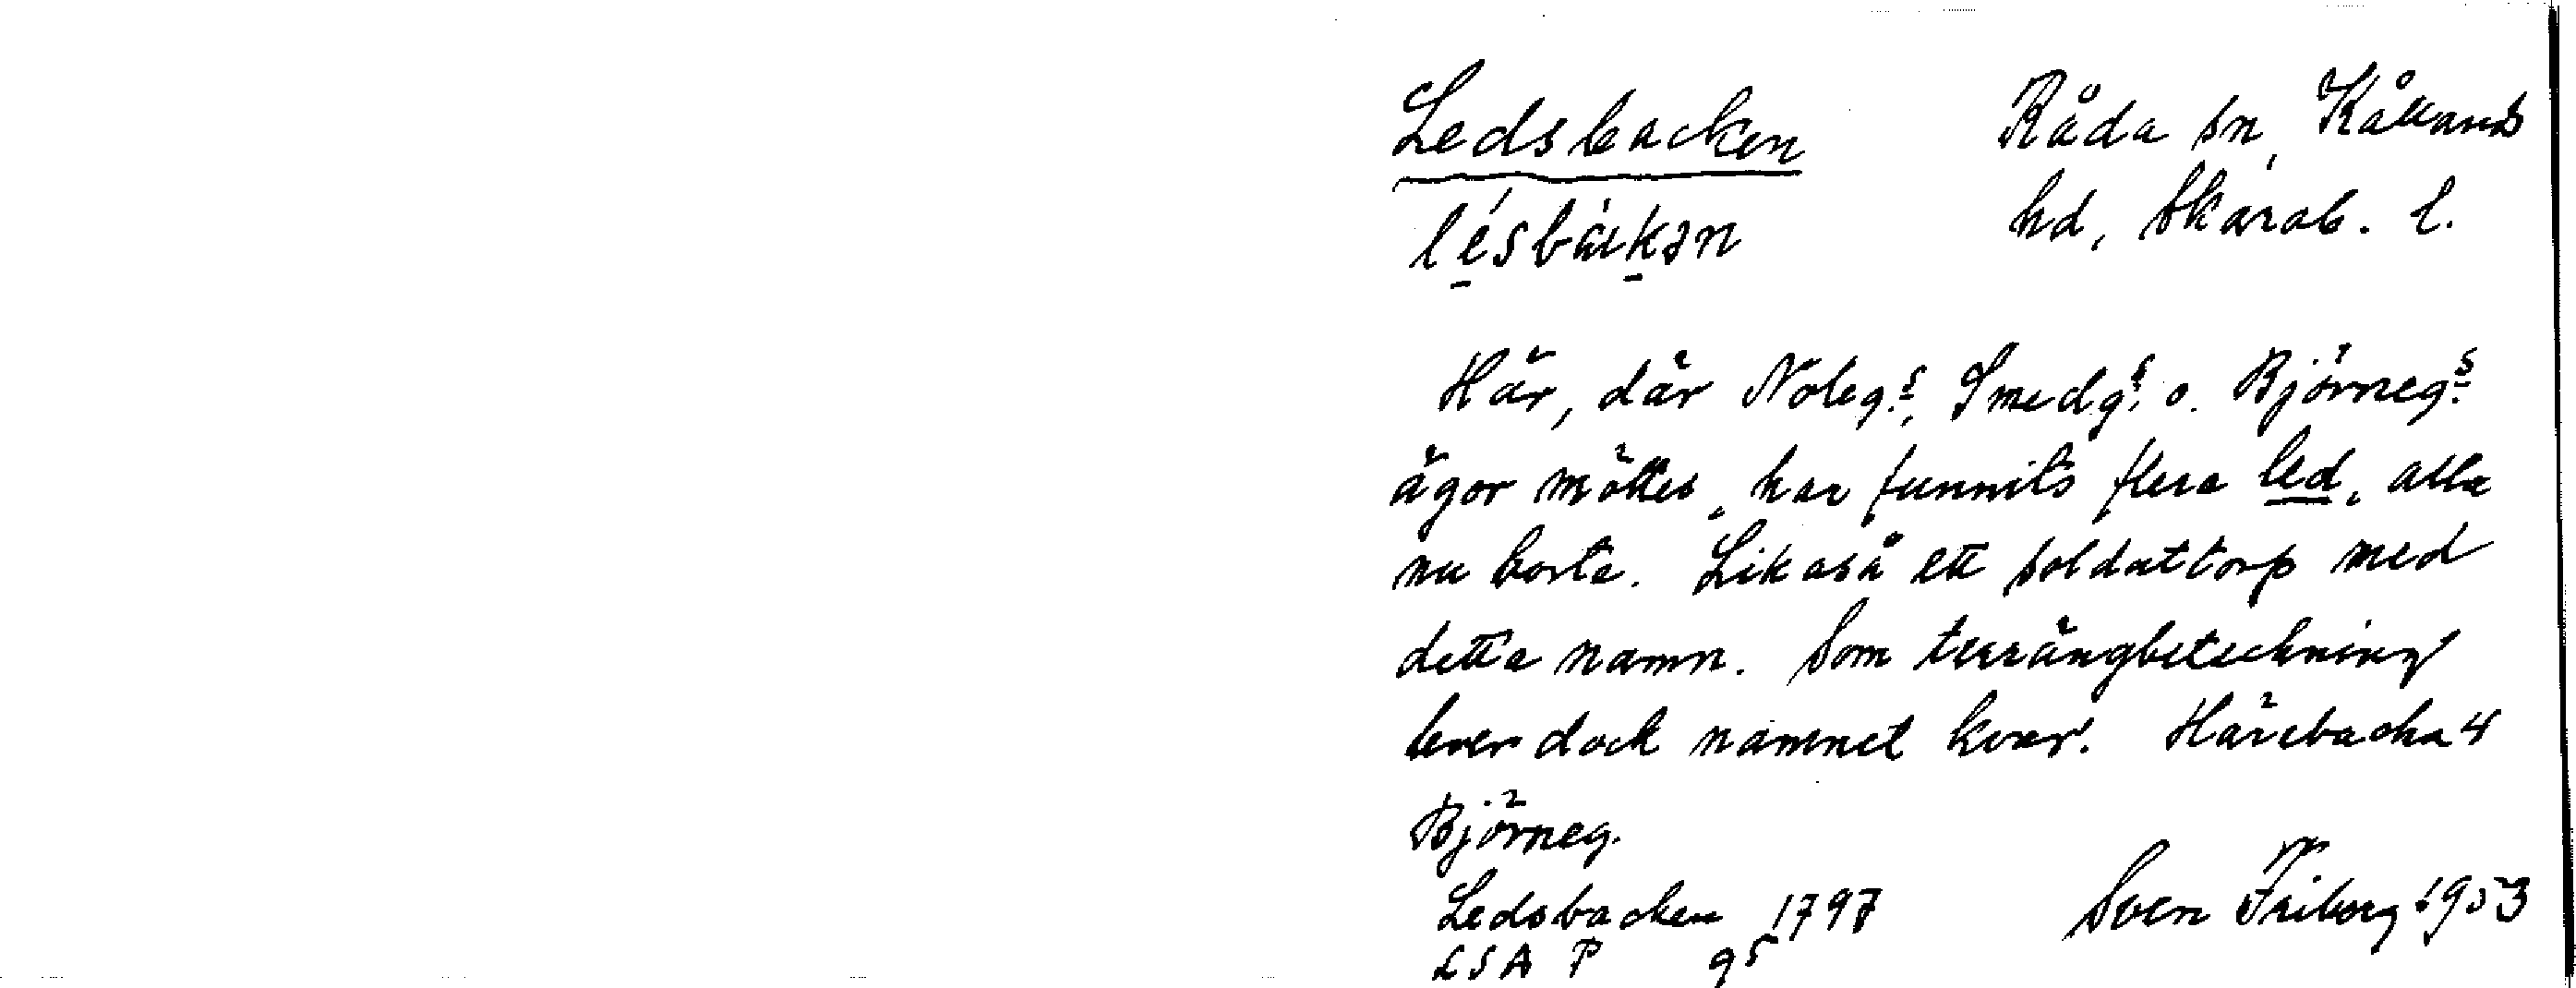 Ledsbacken Råda sn, Kållands
lésbàkən hd, Skarab. l.
Här, där Noleg:s, Smedg:s o. Björneg:s
ägor möttes, har funnits flera led, alla
nu borta. Likaså ett soldattorp med
detta namn. Som terrängbeteckning
lever dock namnet kvar. Härebacka 4
Björneg.
Ledsbacken 1797 Sven Friberg 1953
LSA P 95